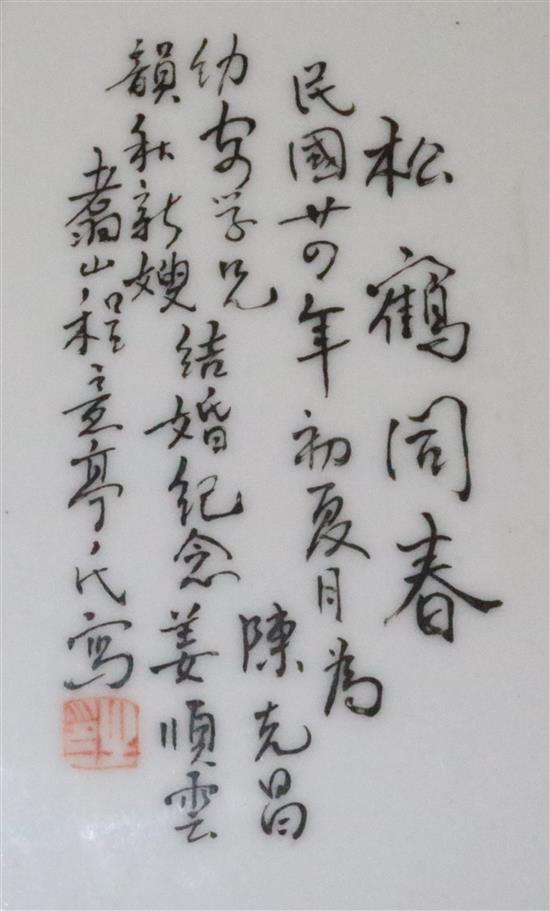 松鶴同春
民國廿四年初夏月為
幼安学兄
韻秋新嫂
結婚紀念
陳克昌
姜順雲
翥山程意亭氏寫